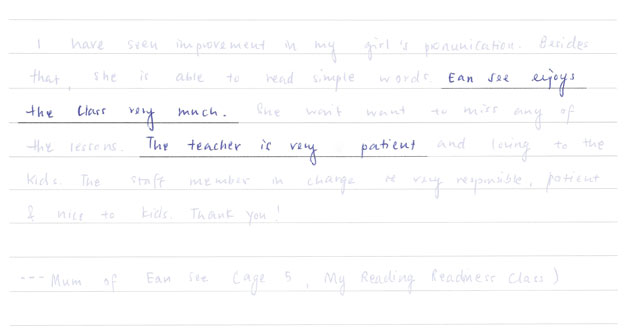 I have seen improvement in my girl's pronunication. Besides
that, she is able to read simple words. Ean See enjoys
the class very much. She won't want to miss any of
the lessons. The teacher is very patient and loving to the
kids. The staff member in charge is very responsible, patient
& nice to kids. Thank you!
--- Mum of Ean See (age 5, My Reading Readness Class)